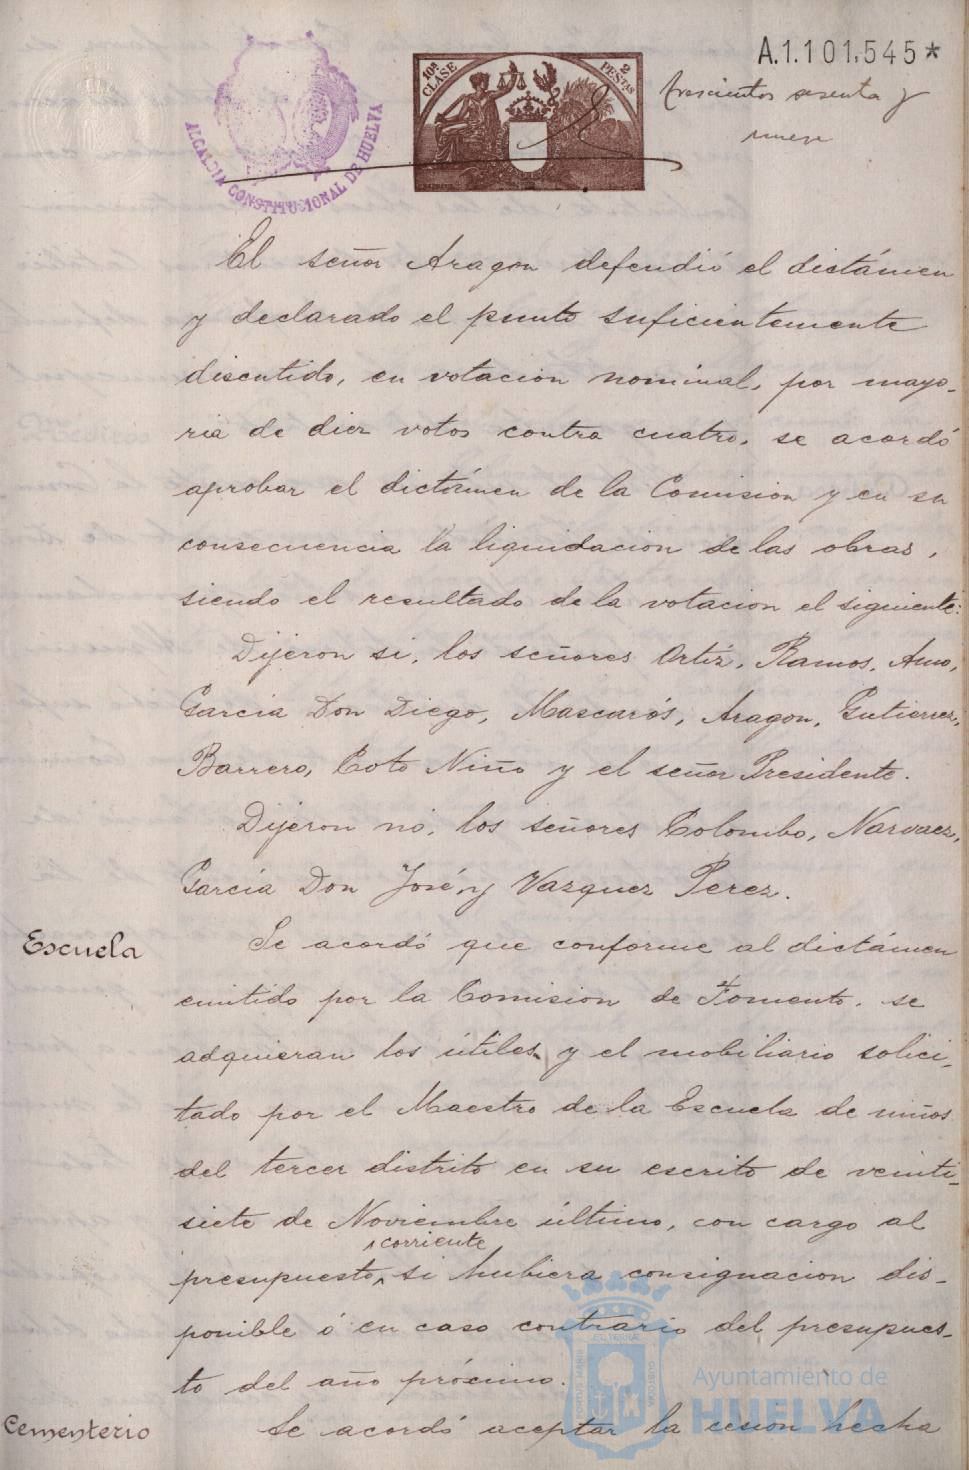 A.1.101.545*
10ª CLASE
2 PESTAS
ALCALDIA CONSTITUCIONAL DE HUELVA
trescientos sesenta y
nueve
El señor Aragon defendió el dictámen
y declarado el punto suficientemente
discutido, en votacion nominal, por mayo-
ria de diez votos contra cuatro, se acordó
aprobar el dictámen de la Comision y en su
consecuencia la liquidacion de las obras,
siendo el resultado de la votacion el siguiente:
Dijeron si, los señores Ortiz, Ramos, Amo,
Garcia Don Diego, Mascarós, Aragon, Gutierrez,
Barrero, Coto Niño y el señor Presidente.
Dijeron no, los señores Colombo, Narvaez,
García Don José y Vazquez Perez.
Escuela
Se acordó que conforme al dictámen
emitido por la Comision de Fomento, se
adquieran los útiles y el mobiliario solici-
tado por el Maestro de la Escuela de niños
del tercer distrito en su escrito de veinti-
siete de Noviembre último, con cargo al
presupuesto corriente, si hubiera consignacion dis-
ponible ó en caso contrario del presupues-
to del año próximo.
Cementerio
Se acordó aceptar la cesion hecha
Ayuntamiento de
HUELVA